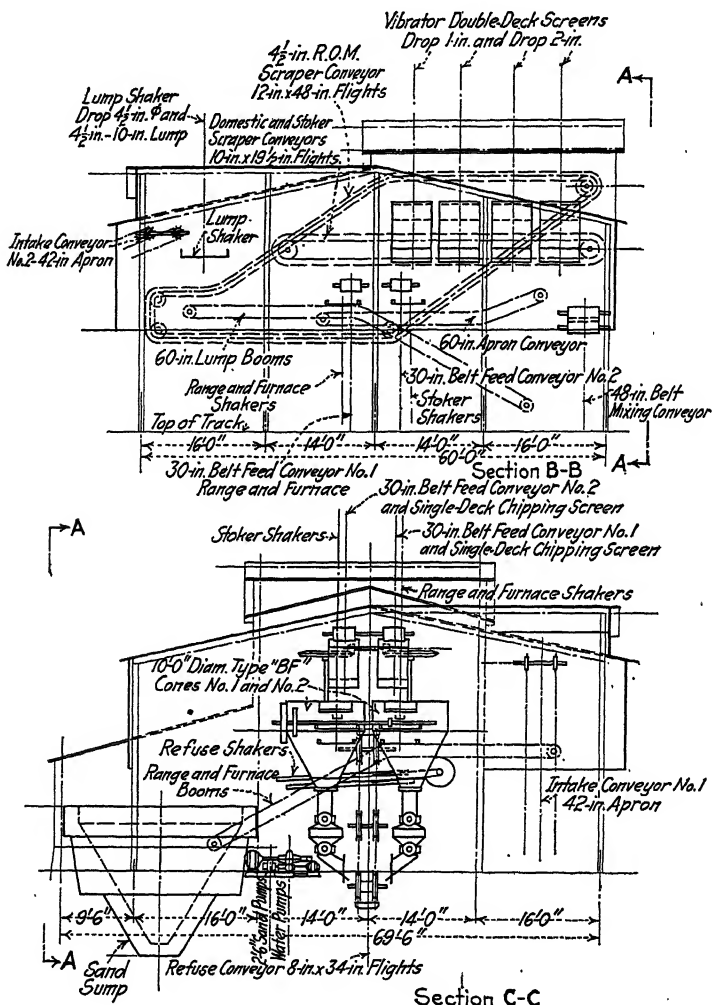 Vibrator Double-Deck Screens
Drop 1-in. and Drop 2-in.
4½-in. R.O.M.
Scraper Conveyor
12-in. x 48-in. Flights
A
Lump Shaker
Drop 4½-in. ϕ and
4½-in.-10-in. Lump
Domestic and Stoker
Scraper Conveyors
10-in. x 19½-in. Flights
Intake Conveyor
No.2-42-in Apron
Lump
Shaker
60-in. Lump Booms
60-in. Apron Conveyor
Range and Furnace
Shakers
30-in. Belt Feed Conveyor No. 2
Stoker
Shakers
48-in. Belt
Mixing Conveyor
Top of Track
16'-0" 14'-0" 14'-0" 16'-0"
60'-0"
A
30-in. Belt Feed Conveyor No.1
Range and Furnace
Section B-B
A
30-in. Belt Feed Conveyor No. 2
and Single-Deck Chipping Screen
Stoker Shakers
30-in. Belt Feed Conveyor No.1
and Single-Deck Chipping Screen
Range and Furnace Shakers
10'-0" Diam. Type "BF"
Cones No.1 and No.2
Refuse Shakers
Range and Furnace
Booms
Intake Conveyor No.1
42-in. Apron
9'-6" 16'-0" 14'-0" 14'-0" 16'-0"
Sand Pumps
Water Pumps
69'-6"
A
Sand
Sump
Refuse Conveyor 8-in. x 34-in. Flights
Section C-C